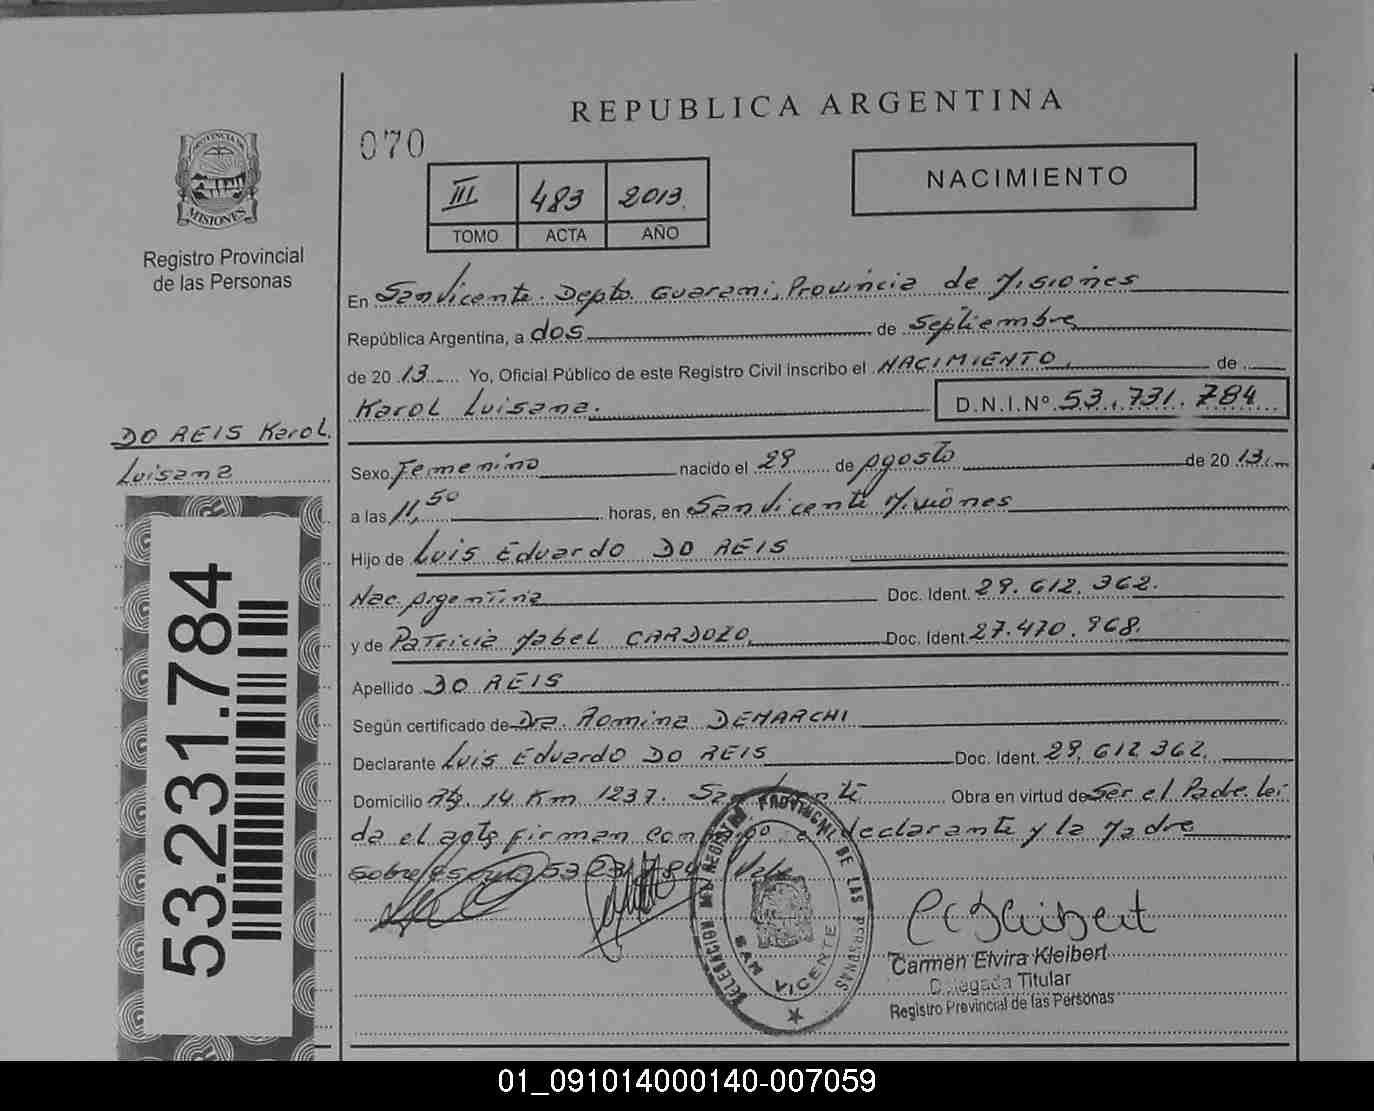 REPUBLICA ARGENTINA
070
NACIMIENTO
III 483 2013
TOMO ACTA AÑO
PROVINCIA DE
MISIONES
Registro Provincial
de las Personas
En San Vicente. Depto. Guarani, Provincia de Misiones
República Argentina, a dos de Septiembre
de 20 13 Yo, Oficial Público de este Registro Civil inscribo el NACIMIENTO, de
Karol Luisana. D.N.I.Nº 53.731.784
DO REIS Karol
Luisana
53.231.784
Sexo Femenino nacido el 29 de Agosto de 20 13
a las 11,50 horas, en San Vicente Misiones
Hijo de Luis Eduardo DO REIS
Nac. Argentina Doc. Ident. 29.612.362.
y de Patricia Mabel CARDOZO, Doc. Ident. 27.470.968.
Apellido DO REIS
Según certificado de Dra. Romina DEMARCHI
Declarante Luis Eduardo DO REIS Doc. Ident. 29,612 362,
Domicilio 14 Km 1237. Obra en virtud de Ser el Padre lei
da el acta firman con declarante y la Madre
Sobre 53 Vale
DELEGACION DEL REGISTRO PROVINCIAL DE LAS PERSONAS
SAN VICENTE
Carmen Elvira Kleibert
Delegada Titular
Registro Provincial de las Personas
01_091014000140-007059